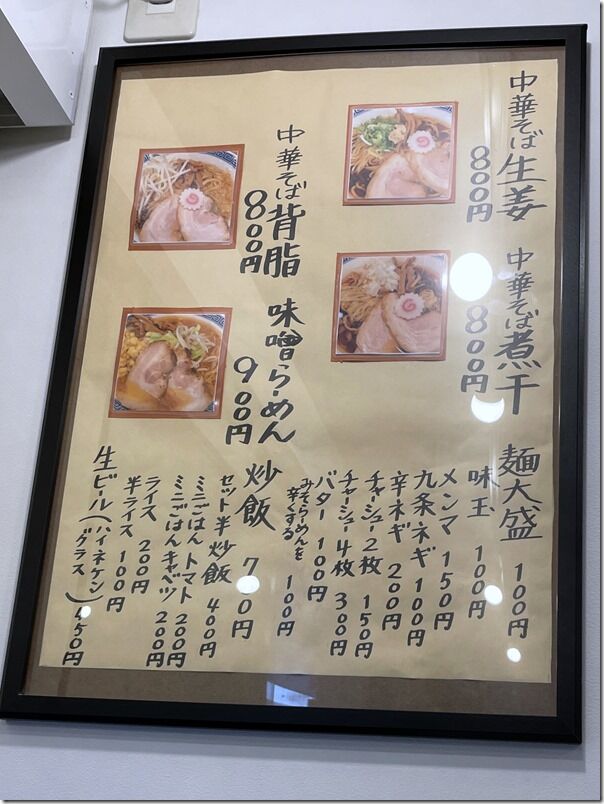 中華そば生姜
800円
中華そば煮干
800円
中華そば背脂
800円
味噌らーめん
900円
麺大盛 100円
味玉 100円
メンマ 150円
九条ネギ 100円
辛ネギ 200円
チャーシュー2枚 150円
チャーシュー4枚 300円
バター 100円
みそらーめんを
辛くする 100円
炒飯 700円
セット半炒飯 400円
ミニごはん トマト 200円
ミニごはんキャベツ 200円
ライス 200円
半ライス 100円
生ビール(ハイネケン)
(グラス) 450円